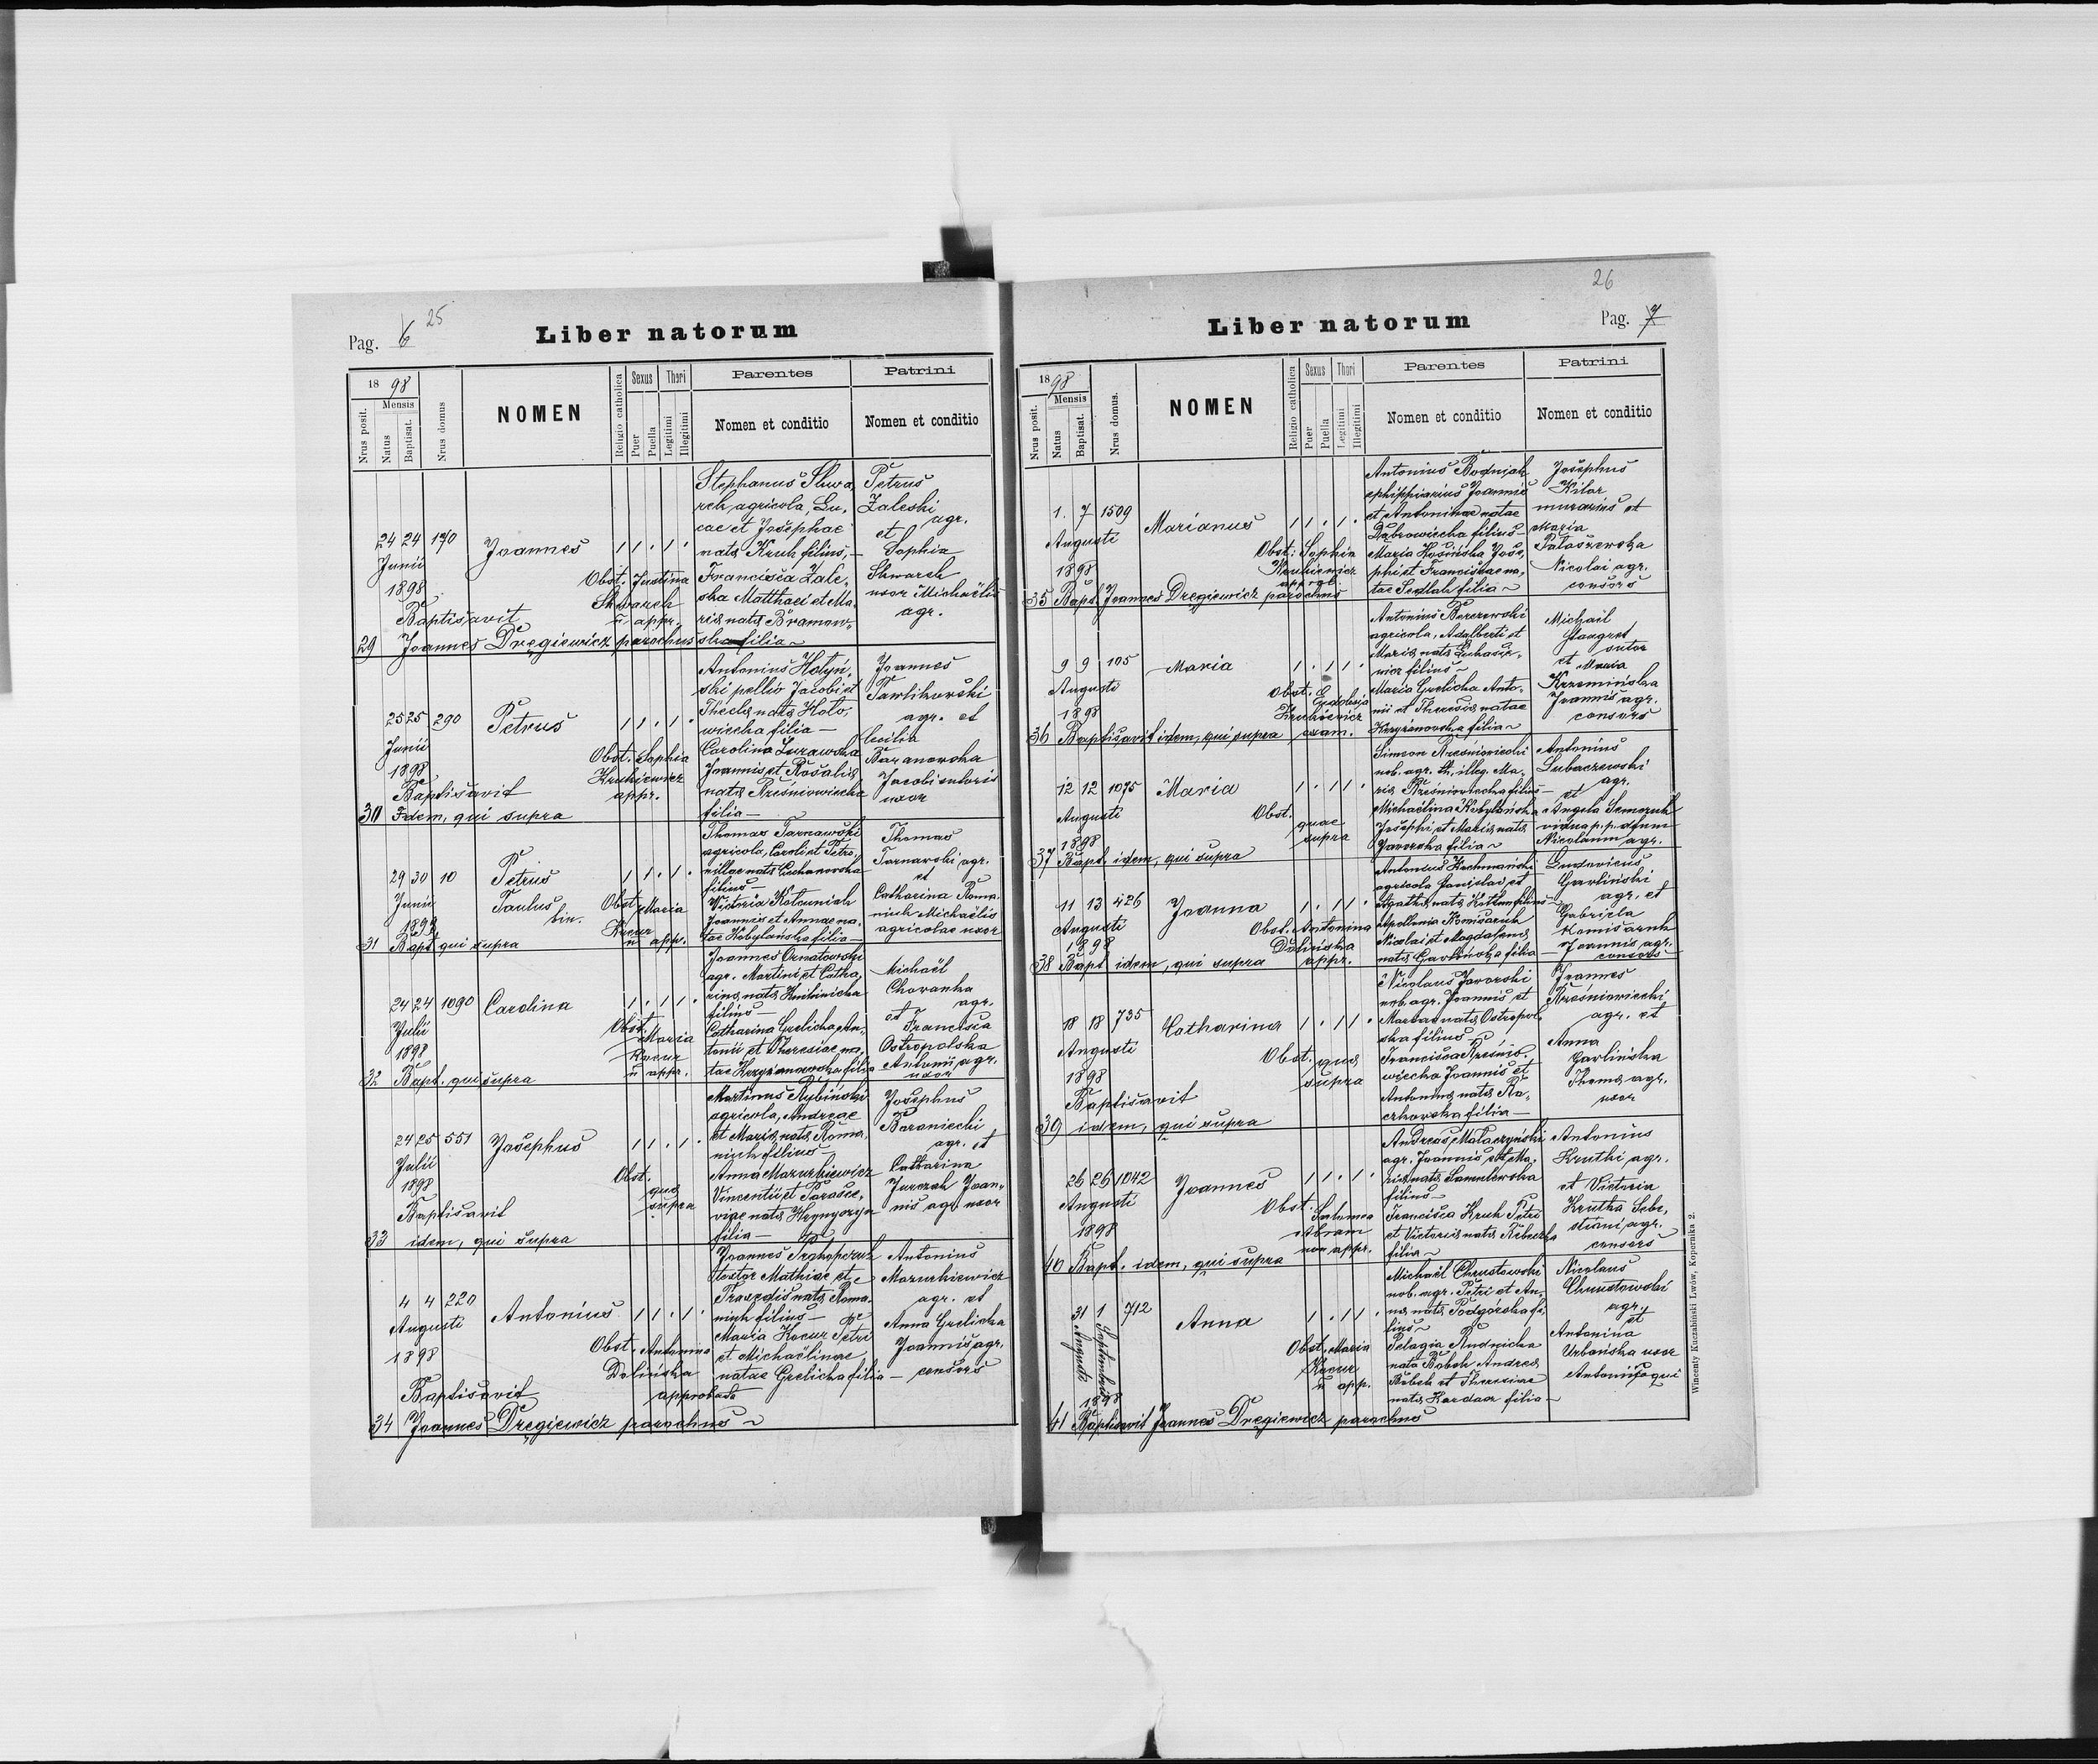 Pag. 6 25
Liber natorum
18 98
Mensis
Nrus posit.
Natus
Baptisat.
Nrus domus
NOMEN
Religio catholica
Sexus
Puer
Puella
Thori
Legitimi
Illegitimi
Parentes
Nomen et conditio
Patrini
Nomen et conditio
24 24 170 Joannes
Junii
1898
Obst. Justina
Skwarek
appr.
Baptisavit
29 Joannes Dręgiewicz parochus
Stephanus Skwa-
rek agricola, Lu-
cae et Josephae
nata Kruk filius,
Francisca Zale-
ska Matthaei et Ma-
ria nata Bramow-
ska filia
Petrus
Zaleski
agr.
et
Sophia
Skwarek
uxor Michaëlis
agr.
25 25 290 Petrus
Junii
1898
Obst. Sophia
Krukiewicz
appr.
Baptisavit
30 Idem, qui supra
Antonius Hołyń-
ski pellio Jacobi et
Thecla nata Koto-
wiecka filia —
Carolina Żurawska
Joannis et Rosalia
nata Krześniowiecka
filia —
Joannes
Pawlikowski
agr. et
Cecilia
Baranowska
Jacobi sutoris
uxor
29 30 10 Petrus
Junii
Paulus
bin.
1898
Obst. Maria
Kocur
appr.
31 Bapt. qui supra
Thomas Tarnawski
agricola, Caroli et Petro-
nillae nata Ciechanowska
filius —
Victoria
Joannis et Annae na-
tae Kobylańska filia —
Thomas
Tarnawski agr.
et
Catharina Roma-
niuk Michaëlis
agricolae uxor
24 24 1090 Carolina
Julii
1898
Obst. Maria
Kocur
appr.
32 Bapt. qui supra
Joannes Ornatowski
agr. Martini et Catha-
rina nata Knihinicka
filius —
Catharina Grelicha An-
tonii et Theresiae na-
tae Krzyżanowska filia
Michaël
Chovanka
agr.
et
Francisca
Ostropolska
Antonii agr.
uxor
24 25 551 Josephus
Julii
1898
Obst.
quae
supra
Baptisavit
33 idem, qui supra
Martinus Rybiński
agricola, Andreae
et Maria nata Roma-
niuk filius —
Anna Mazurkiewicz
Vincentii et Parasce-
viae nata
filia —
Josephus
Baraniecki
agr. et
Catharina
Jurczak Joan-
nis agr. uxor
4 4 220 Antonius
Augusti
1898
Obst. Antonina
Dolińska
approbata
Baptisavit
34 Joannes Dręgiewicz parochus
Joannes Prokopczuk
Mathiae et
Praxedis nata Roma-
niuk filius —
Maria Kocur Petri
et Michaëlinae
natae Grelicha filia —
Antonius
Mazurkiewicz
agr. et
Anna Grelicha
Joannis agr.
consors
26
Liber natorum
Pag. 7
18 98
Mensis
Nrus posit.
Natus
Baptisat.
Nrus domus.
NOMEN
Religio catholica
Sexus
Puer
Puella
Thori
Legitimi
Illegitimi
Parentes
Nomen et conditio
Patrini
Nomen et conditio
1. 7 1509 Marianus
Augusti
1898
Obst: Sophia
Krukiewicz
35 Bapt. Joannes Dręgiewicz parochus
Antonius Bodnjak
ephippiarius Joannis
et Antoninae natae
Dąbrowiecka filius —
Maria Kosińska Jose-
phi et Franciscae na-
tae Sedlak filia
Josephus
Kilar
murarius et
Maria
Pałaszewska
Nicolai agr.
consors
9 9 105 Maria
Augusti
1898
Obst. Eudokija
Krukiewicz
exam.
36 Baptisavit idem, qui supra
Antonius Berezowski
agricola, Adalberti et
Maria nata Łukasie-
wicz filius
Maria Grelicha Anto-
nii et Theresia natae
Krzyżanowska filia
Michaël
sutor
et Maria
Krzemińska
Joannis agr.
consors
12 12 1075 Maria
Augusti
1898
Obst.
quae
supra
37 Bapt. idem, qui supra
Simeon Krześniowiecki
nob. agr. th. illeg. Ma-
ria Krześniowiecka filius —
Michaëlina Kobylańska
Josephi et Maria nata
Javorska filia
Antonius
Lubaczewski
agr.
et
Angela Semczuk
vidua p. p. dfum
Nicolaum agr.
11 13 426 Joanna
Augusti
1898
Obst. Antonina
Dolińska
appr.
38 Bapt. idem, qui supra
Antonius
agricola et
Agatha nata filius —
Apollonia Komisaruk
Nicolai et Magdalena
nata Gavlińska filia —
Ludovicus
Gavliński
agr. et
Gabriela
Komisaruk
Joannis agr.
consors
18 18 735 Catharina
Augusti
1898
Obst. quae
supra
Baptisavit
39 idem, qui supra
Nicolaus Javorski
nob. agr. Joannis et
nata Ostropol-
ska filius
Francisca Krześnio-
wiecka Joannis et
Antonina nata Ra-
czkowska filia —
Joannes
Krześniowiecki
agr. et
Anna
Gavlińska
Thoma agr.
uxor
26 26 1042 Joannes
Augusti
1898
Obst. Salomea
Abram
non appr.
40 Bapt. idem, qui supra
Andreas Mataczyński
agr. Joannis et Ma-
ria nata Samulewska
filius —
Francisca Kruk Petri
et Victoria nata
filia
Antonius
Krutki agr.
et Victoria
Krutka Seba-
stiani agr.
consors
31 1 712 Anna
Augusti
Septembris
1898
Obst. Maria
Kocur
app.
41 Baptisavit Joannes Dręgiewicz parochus
Michaël Chrustowski
nob. agr. Petri et An-
na nata Podgórska fi-
lius
Pelagia Rudnicka
nata Babch Andrea
Babch et Theresiae
nata Kardasz filia —
Nicolaus
Chrustowski
agr.
et
Antonina
Urbańska uxor
Antonii
Wincenty Kuczabiński Lwów, Kopernika 2.